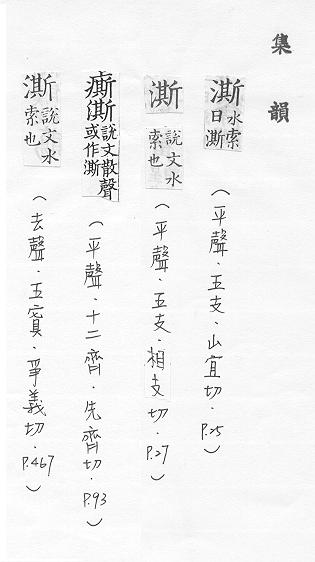 集韻
澌 水索曰澌 (平聲.五支.山宜切.P.25)
澌 說文水索也 (平聲.五支.相支切.P.27)
說文散聲或作澌 (平聲.十二齊.先齊切.P.93)
澌 說文水索也 (去聲.五寘.爭義切.P.467)